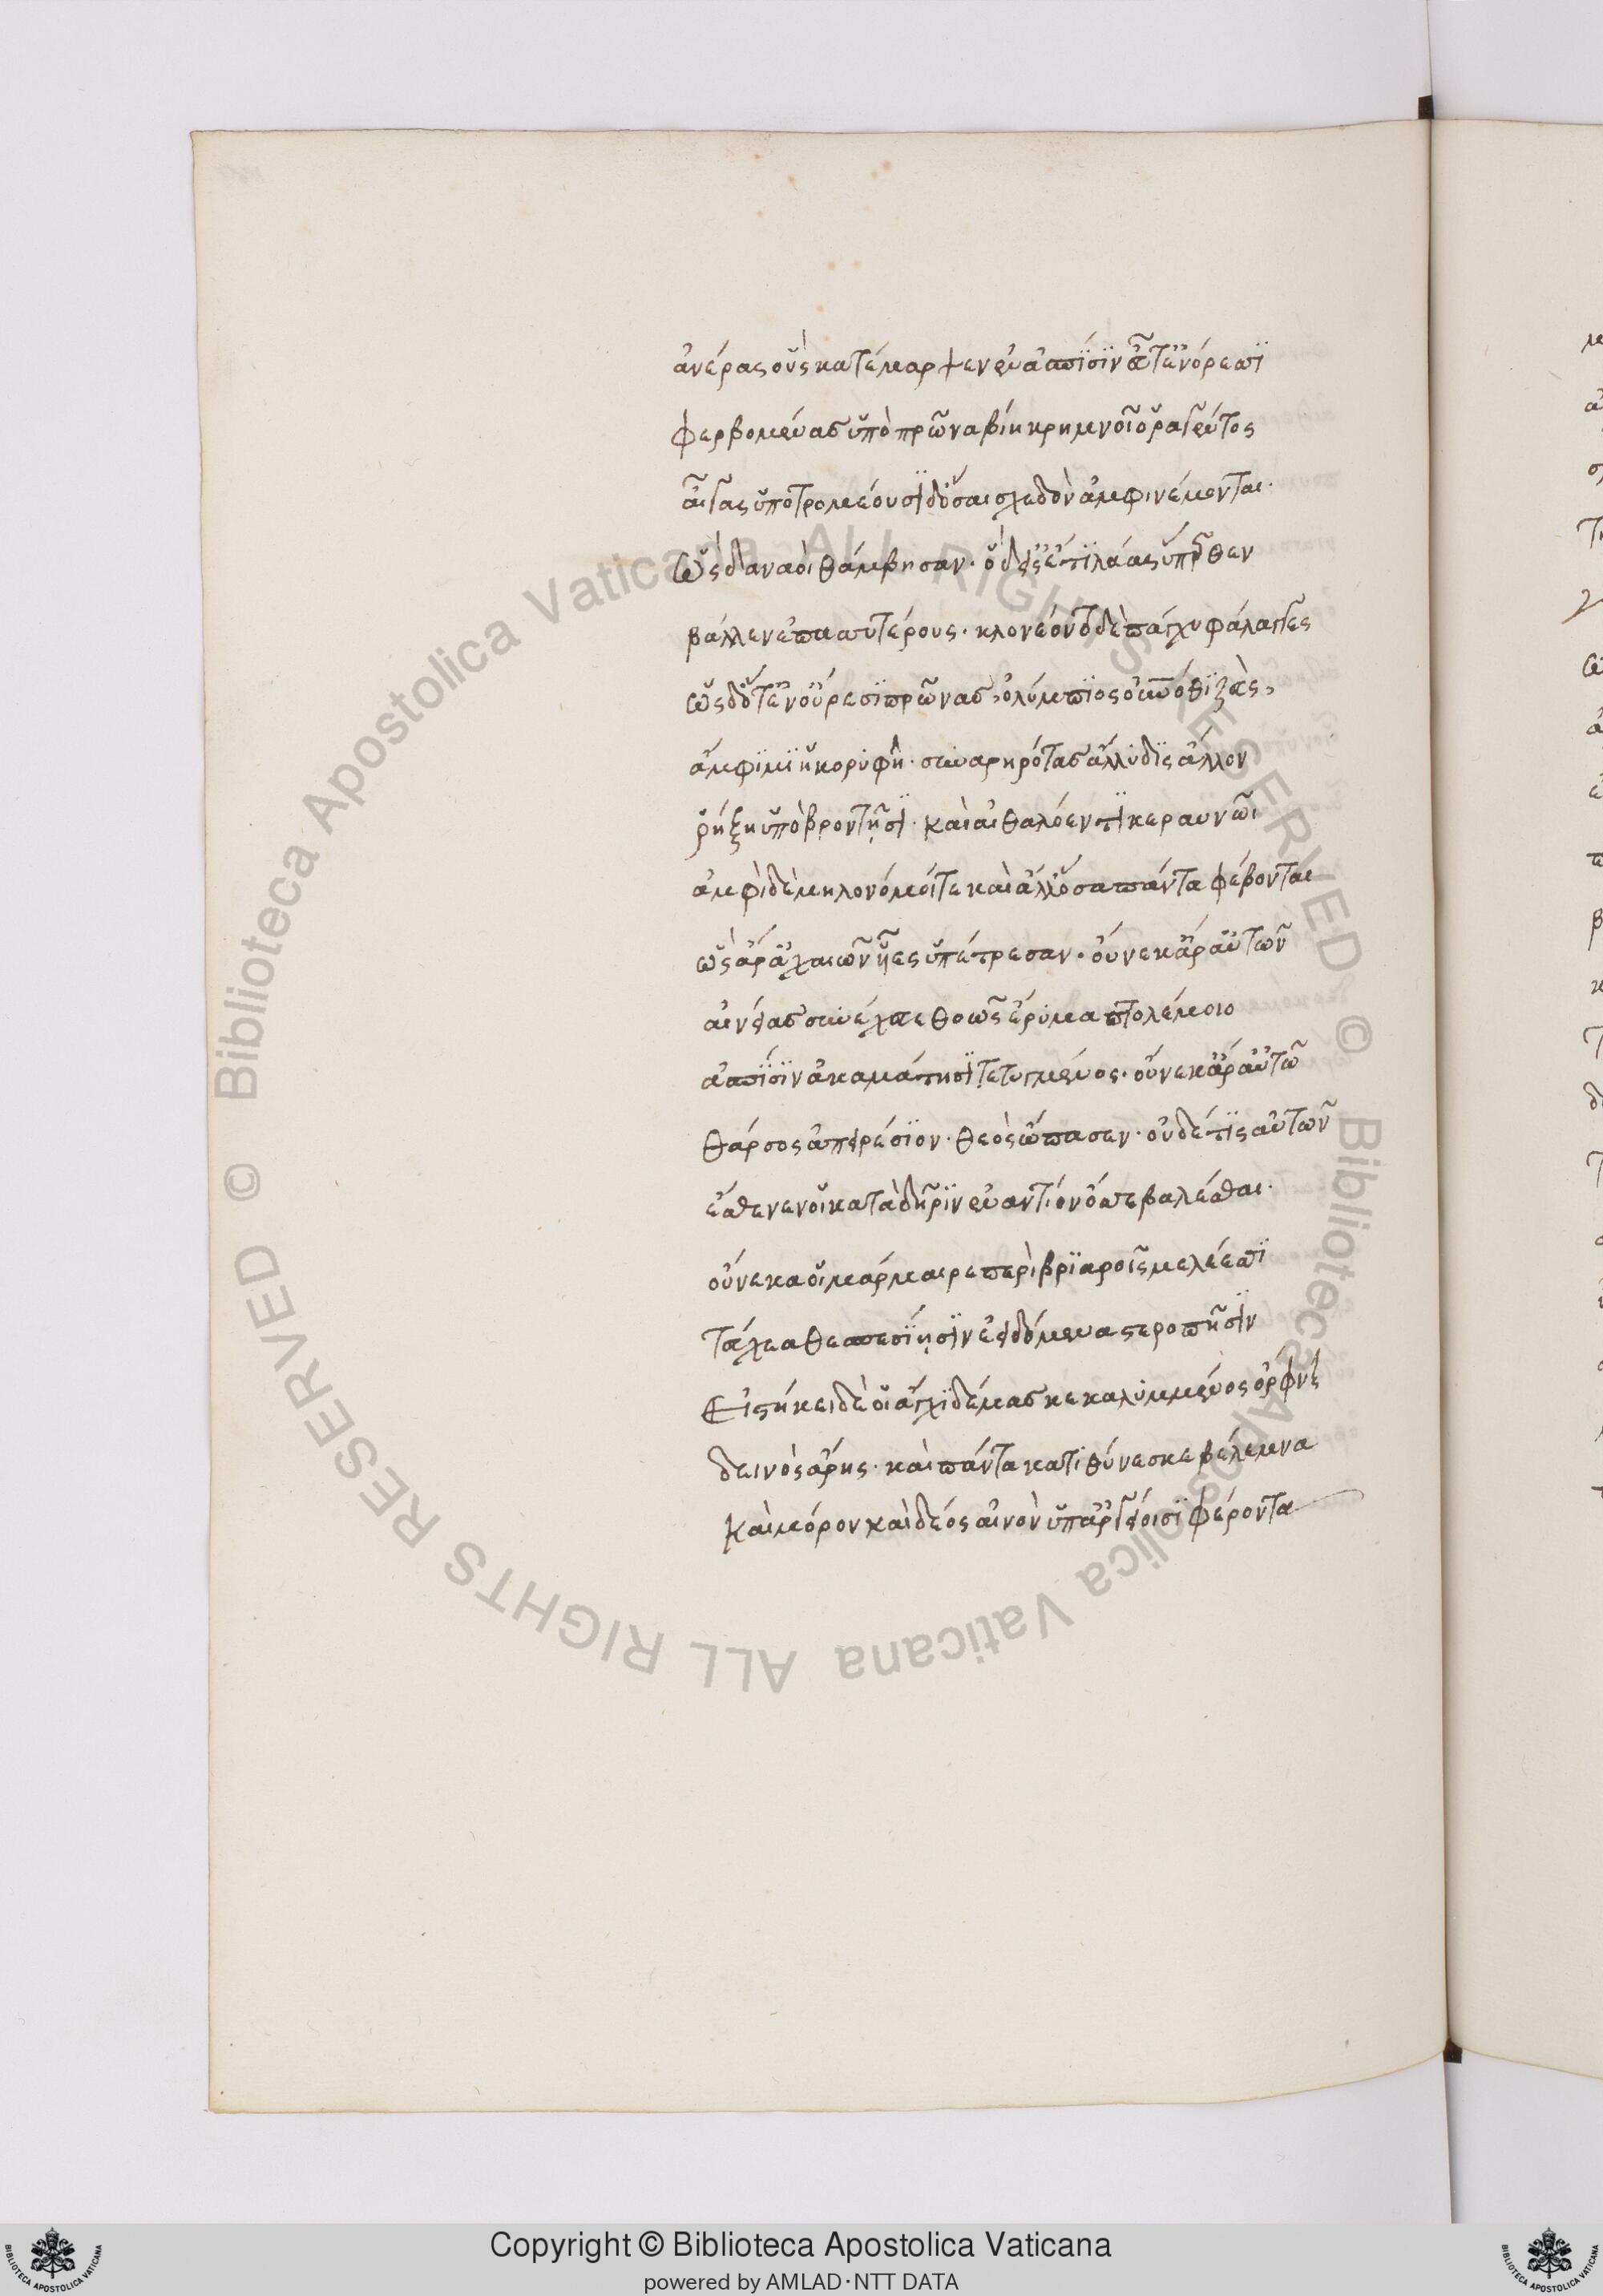 ἀνέρας οὓς κατέμαρψεν ἐν ἀσπίσιν ἆτ' ἐν ὄρεσσι
φερβομένας ὑπὸ πρῶνα βίη κρημνοῖο ῥαγέντος
αἶγας ὑποτρομέουσιν ὅσαι σχεδὸν ἀμφινέμονται.
ὣς δαναοὶ θάμβησαν. ὁ δ' εἰσέτι λᾶας ὕπερθεν
βάλλεν ἐπασσυτέρους. κλονέοντο δὲ πάγχυ φάλαγγες
ὡς δ' ὅτ' ἐν οὔρεσι πρῶνας, ὀλύμπιος ὁππόθι ζεὺς,
ἀμφὶ μιῇ κορυφῇ. συναρηρότας ἄλλυδις ἄλλον
ῥήξῃ ὑπὸ βροντῇσι. καὶ αἰθαλόεντι κεραυνῶι
ἀμφὶ δὲ μηλονόμοί τε καὶ ἄλλ' ὅσα πάντα φέβονται
ὣς ἄρ' ἀχαιῶν ἷες ὑπέτρεσαν. οὕνεκ' ἄρ' αὐτῶν
αἰνείας συνέχευε θοῶς ἔρυμα πτολέμοιο
ἀσπίσιν ἀκαμάτῃσι τετυγμένος. οὕνεκ' ἄρ' αὐτῶ
θάρσος ἀπειρέσιον. θεὸς ὤπασεν. οὐδέ τις αὐτῶν
ἔσθενέν οἱ κατὰ δῆριν ἐναντίον ὄσσε βαλέσθαι.
οὕνεκά οἱ μάρμαιρε περὶ βριαροῖς μελέεσσι
τεύχεα θεσπεσίῃσιν ἐειδόμενα στεροπῇσιν
Εἰστήκει δέ οἱ ἄγχι δέμας κεκαλυμμένος ὄρφνῃ
δεινὸς ἄρης. καὶ πάντα κατιθύνεσκε βέλεμνα
καὶ μόρον καὶ δέος αἰνὸν ὑπ' ἀργείοισι φέροντα
Copyright © Biblioteca Apostolica Vaticana
powered by AMLAD·NTT DATA
© Biblioteca Apostolica Vaticana ALL RIGHTS RESERVED
© Biblioteca Apostolica Vaticana ALL RIGHTS RESERVED